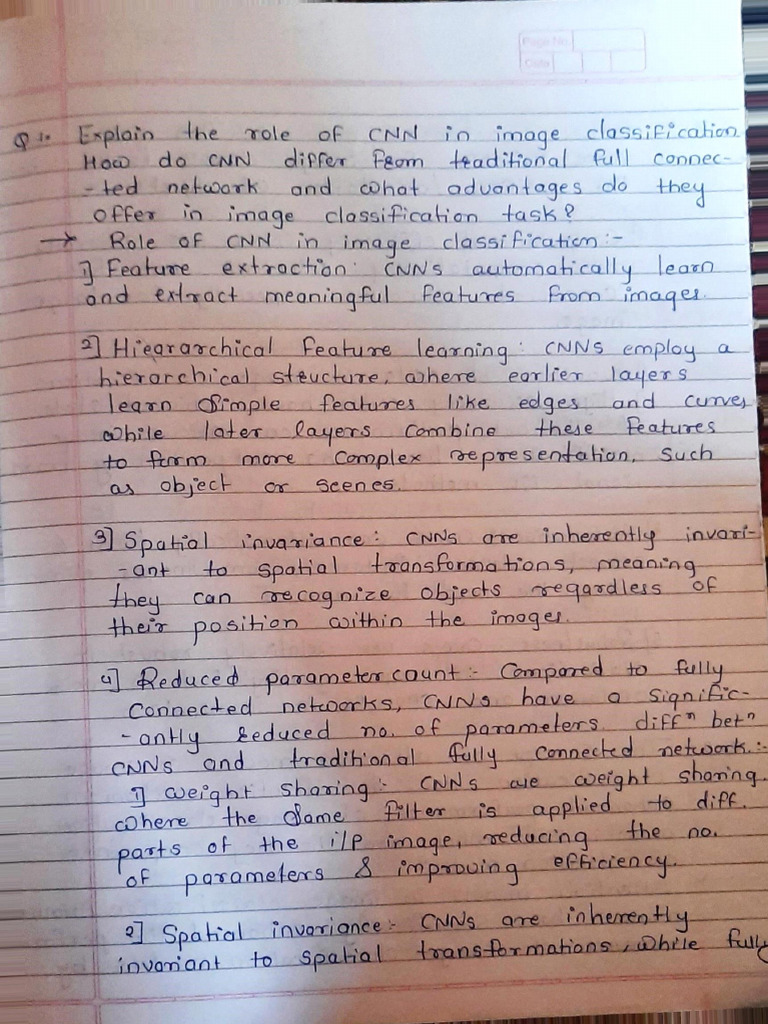 Page No.
Date
Q 1. Explain the role of CNN in image classification
How do CNN differ from traditional full connec-
-ted network and what advantages do they
offer in image classification task?
→ Role of CNN in image classification:-
1] Feature extraction: CNNs automatically learn
and extract meaningful features from images.
2] Hiegrarchical feature learning: CNNs employ a
hierarchical structure, where earlier layers
learn simple features like edges and curves
while later layers combine these features
to form more complex representation, such
as object or scenes.
3] Spatial invariance: CNNs are inherently invari-
-ant to spatial transformations, meaning
they can recognize objects regardless of
their position within the images.
4] Reduced parameter count:- Compared to fully
connected networks, CNNs have a signific-
-antly reduced no. of parameters. diffⁿ betⁿ
CNNs and traditional fully connected network:-
1] weight sharing:- CNNs are weight sharing.
where the same filter is applied to diff.
parts of the i/p image, reducing the no.
of parameters & improving efficiency.
2] Spatial invariance:- CNNs are inherently
invariant to spatial transformations, while fully